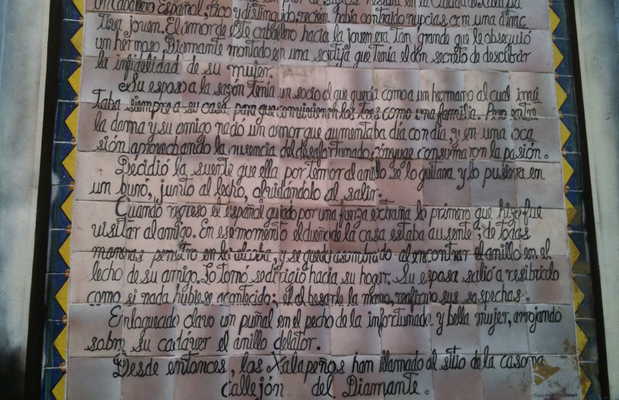 un caballero Español, rico y distinguido, recien había contraído nupcias con una dama
muy joven. El amor de este caballero hacía la joven era tan grande que le obsequió
un hermoso, Diamante montado en una sortija que tenía el don secreto de descubrir
la infidelidad de su mujer.
Su esposo a la sazon tenia un socio al que quería como a un hermano al cual invi
taba siempre a su casa para que convivieran los tres como una familia. Pero entre
la dama y su amigo nació un amor que aumentaba día con día; y en una oca
sión aprovechando la ausencia del desafortunado cónyuge consumaron la pasión.
Decidió la suerte que ella por temor al anillo se lo quitara y lo pusiera en
un buró, junto al lecho, olvidándolo al salir.
Cuando regreso el español guiado por una fuerza extraña lo primero que hizo fue
visitar al amigo. En ese momento el dueño de la casa estaba ausente; de todas
maneras penetro en la alcoba, y se quedó asombrado al encontrar el anillo en el
lecho de su amigo. Lo tomó se dirigió hacia su hogar. Su esposa salió a resibirlo
como si nada hubiese acontecido; el al besarle la mano, confirmo sus sospechas.
Enloquecido clavo un puñal en el pecho de la infortunada y bella mujer, arrojando
sobre su cadaver el anillo delator.
Desde entonces, los Xalapeños han llamado al sitio de la casona
Callejón del Diamante.